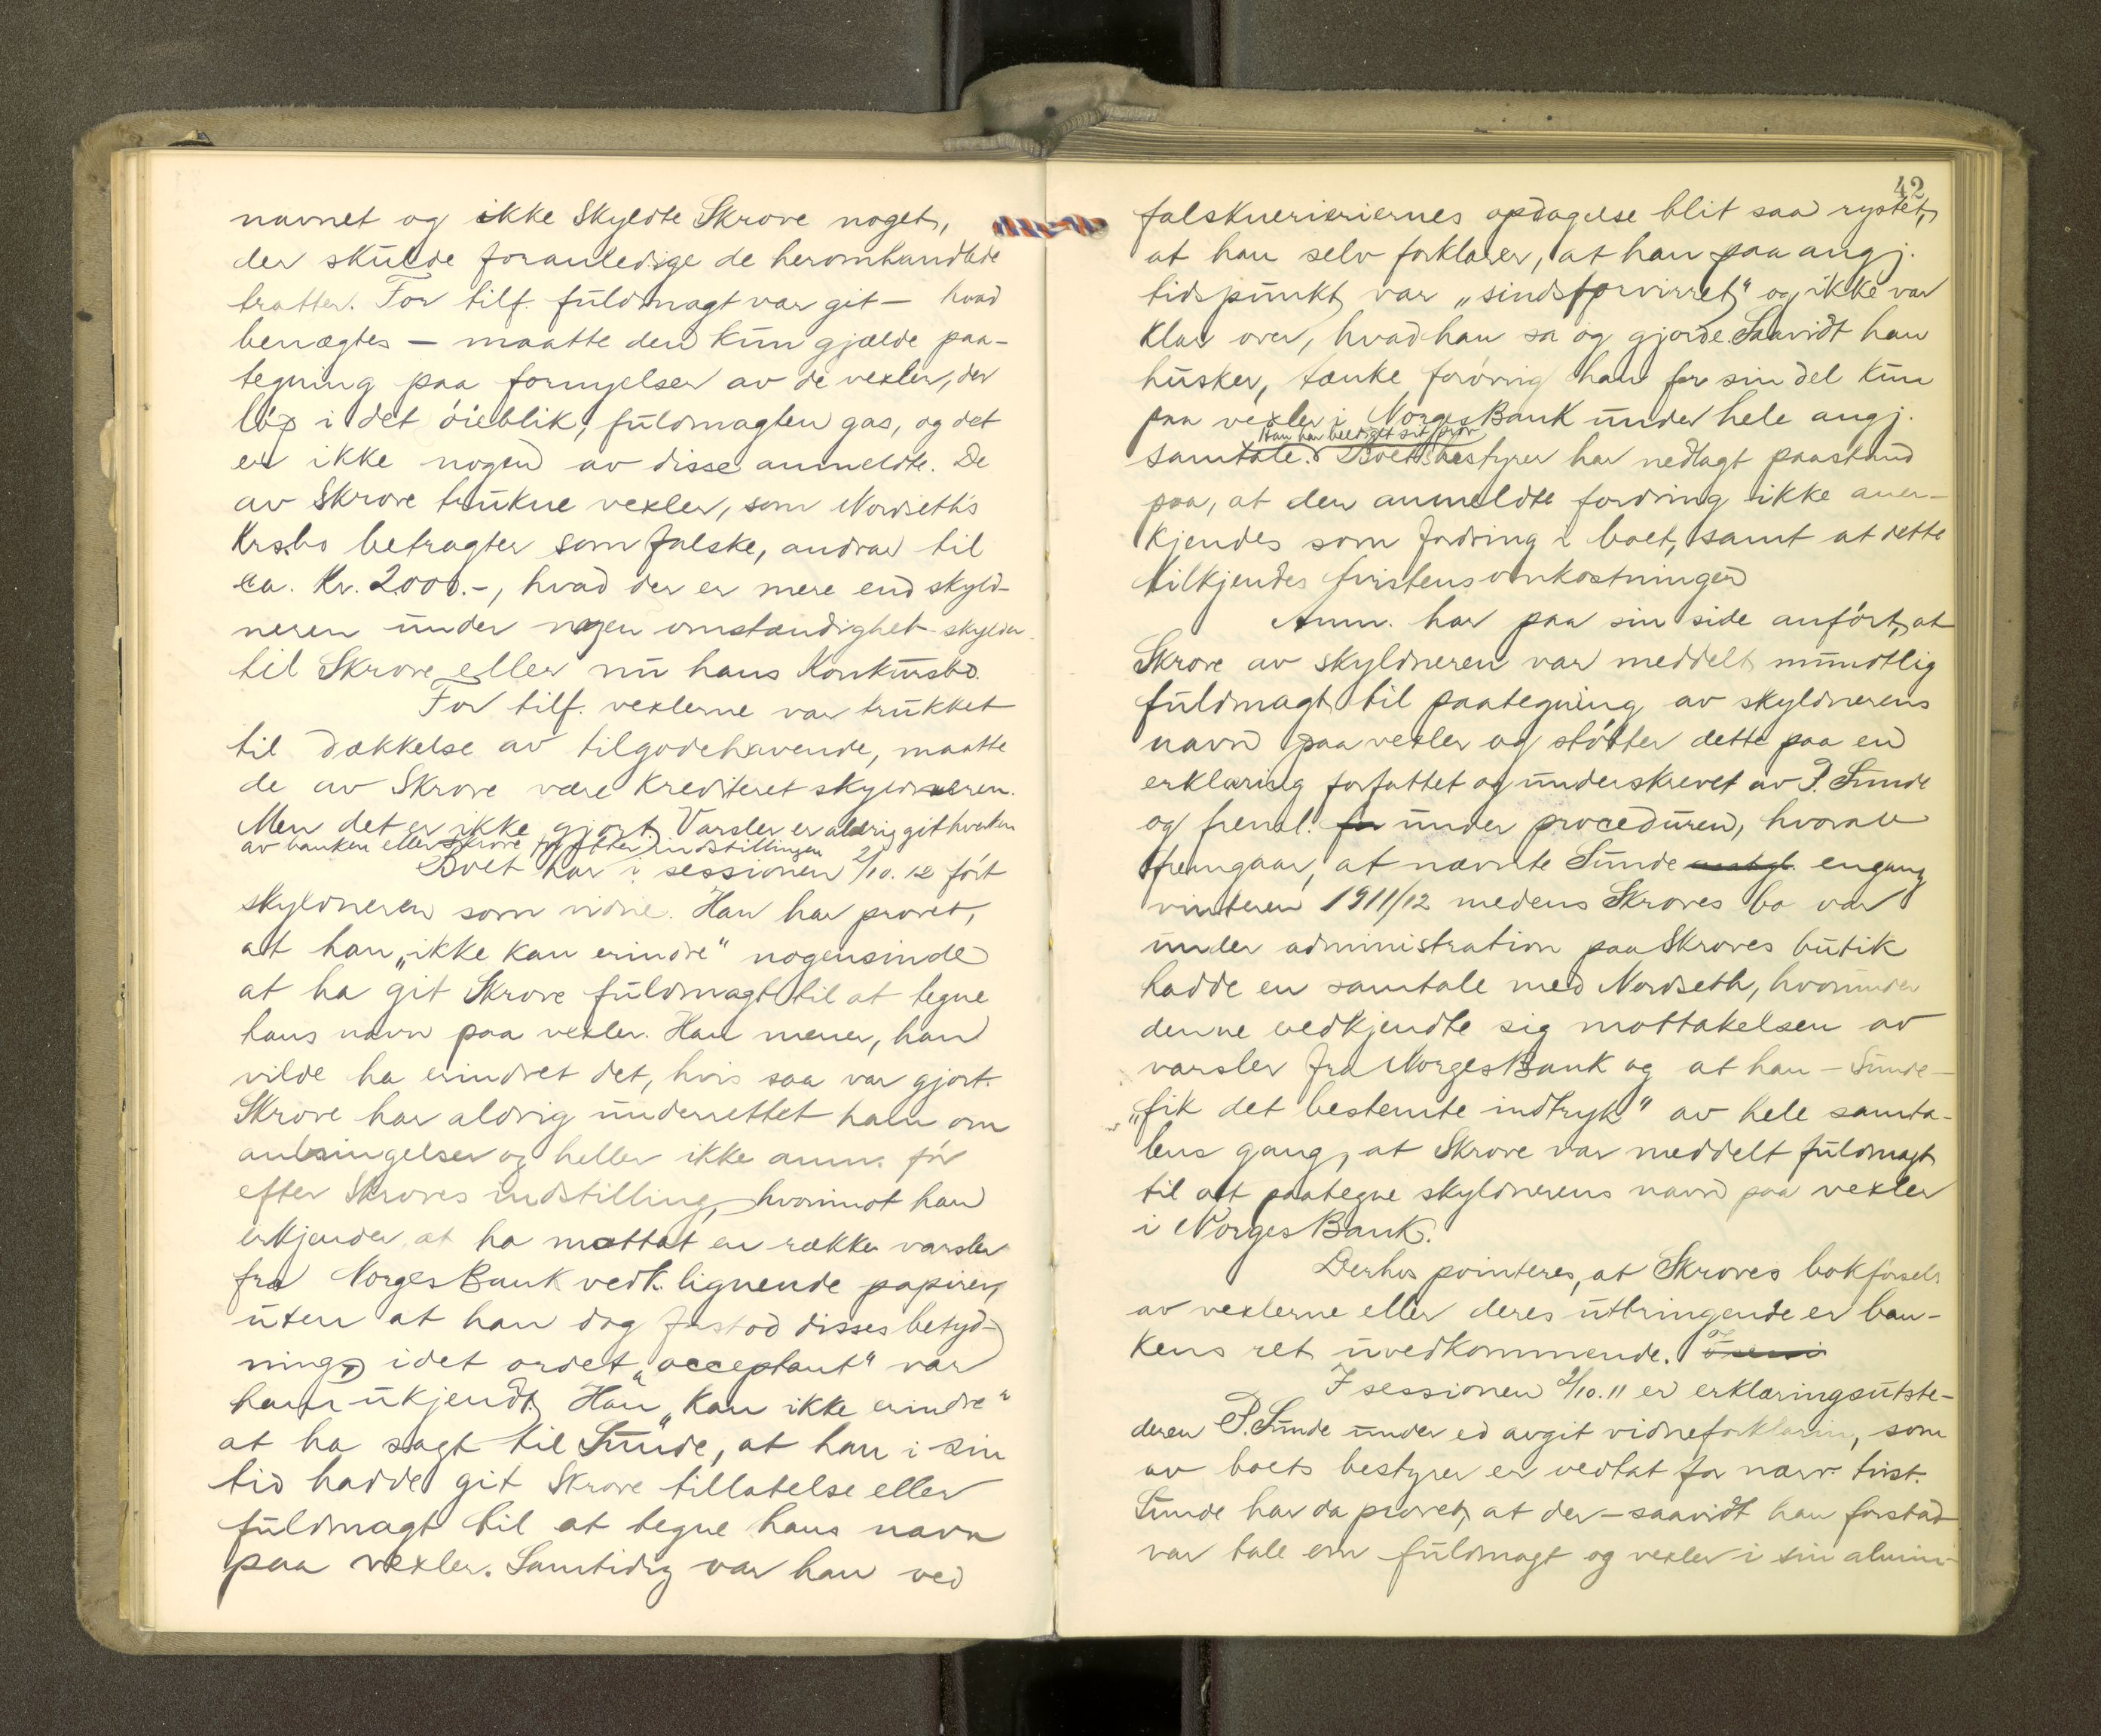 navnet og ikke skyldte Skrove noget,
der skulde foranledige de heromhandlede
tratter. For tilf. fuldmagt var git – hvad
benægtes – maatte den kun gjælde paa-
tegning paa fornyelser av de vexler, der
löp i det öieblik, fuldmagten gas, og det
er ikke nogen av disse anmeldte. De
av Skrove trukne vexler, som Nordseth's
Krs.bo betragter som falske, andrar til
ca. Kr. 2000.-, hvad der er mere end skyld-
neren under nogen omstændighet skylder
til Skrove eller nu hans Konkursbo.
For tilf. vexlerne var trukket
til dækkelse av tilgodehavende, maatte
de av Skrove være krediteret skyldneren.
Men det er ikke gjort. Varsler er aldrig git hverken
av banken eller Skrove för efter indstillingen
Boet har i sessionen 2/10. 12 fört
skyldneren som vidne. Han har provet,
at han „ikke kan erindre" nogensinde
at ha git Skrove fuldmagt til at tegne
hans navn paa vexler. Han mener, han
vilde ha erindret det, hvis saa var gjort.
Skrove har aldrig underrettet ham om
anbringelser og heller ikke anm. för
efter Skroves indstilling, hvorimot han
erkjender at ha mottat en række varsler
fra Norges Bank vedk. lignende papirer,
uten at han dog forstod disses betyd-
ning, idet ordet „acceptant" var
ham ukjendt. Han „kan ikke erindre"
at ha sagt til Sunde, at han i sin
tid hadde git Skrove tillatelse eller
fuldmagt til at tegne hans navn
paa vexler. Samtidig var han ved
42
falsknerieriernes opdagelse blit saa rystet,
at han selv forklarer, at han paa angj.
tidspunkt var „sindsforvirret" og ikke var
klar over, hvad han sa og gjorde. Saavidt han
husker, tænke forövrig han for sin del kun
paa vexler i Norges Bank under hele angj.
Han har beediget sit prov
samtale. Boets bestyrer har nedlagt paastand
paa, at den anmeldte fordring ikke aner-
kjendes som fordring i boet, samt at dette
tilkjendes tvistens omkostninger
Anm. har paa sin side anfört, at
Skrove av skyldneren var meddelt mundtlig
fuldmagt til paategning av skyldnerens
navn paa vexler og stötter dette paa en
erklæring forfattet og underskrevet av P. Sunde
og freml. under proceduren, hvorav
fremgaar, at nævnte Sunde engang
vinteren 1911/12 medens Skroves bo var
under administration paa Skroves butik
hadde en samtale med Nordseth, hvorunder
denne vedkjendte sig mottakelsen av
varsler fra Norges Bank og at han – Sunde –
„fik det bestemte indtryk" av hele samta-
lens gang, at Skrove var meddelt fuldmagt
til at paategne skyldnerens navn paa vexler
i Norges Bank.
Derhos pointeres, at Skroves bokförsel
av vexlerne eller deres utbringende er ban-
kens ret uvedkommende.
I sessionen 2/10. 11 er erklæringsutste-
deren P. Sunde under ed avgit vidneforklaring, som
av boets bestyrer er vedtat for nærv. tvist.
Sunde har da provet, at der – saavidt han forstod –
var tale om fuldmagt og vexler i sin almin-